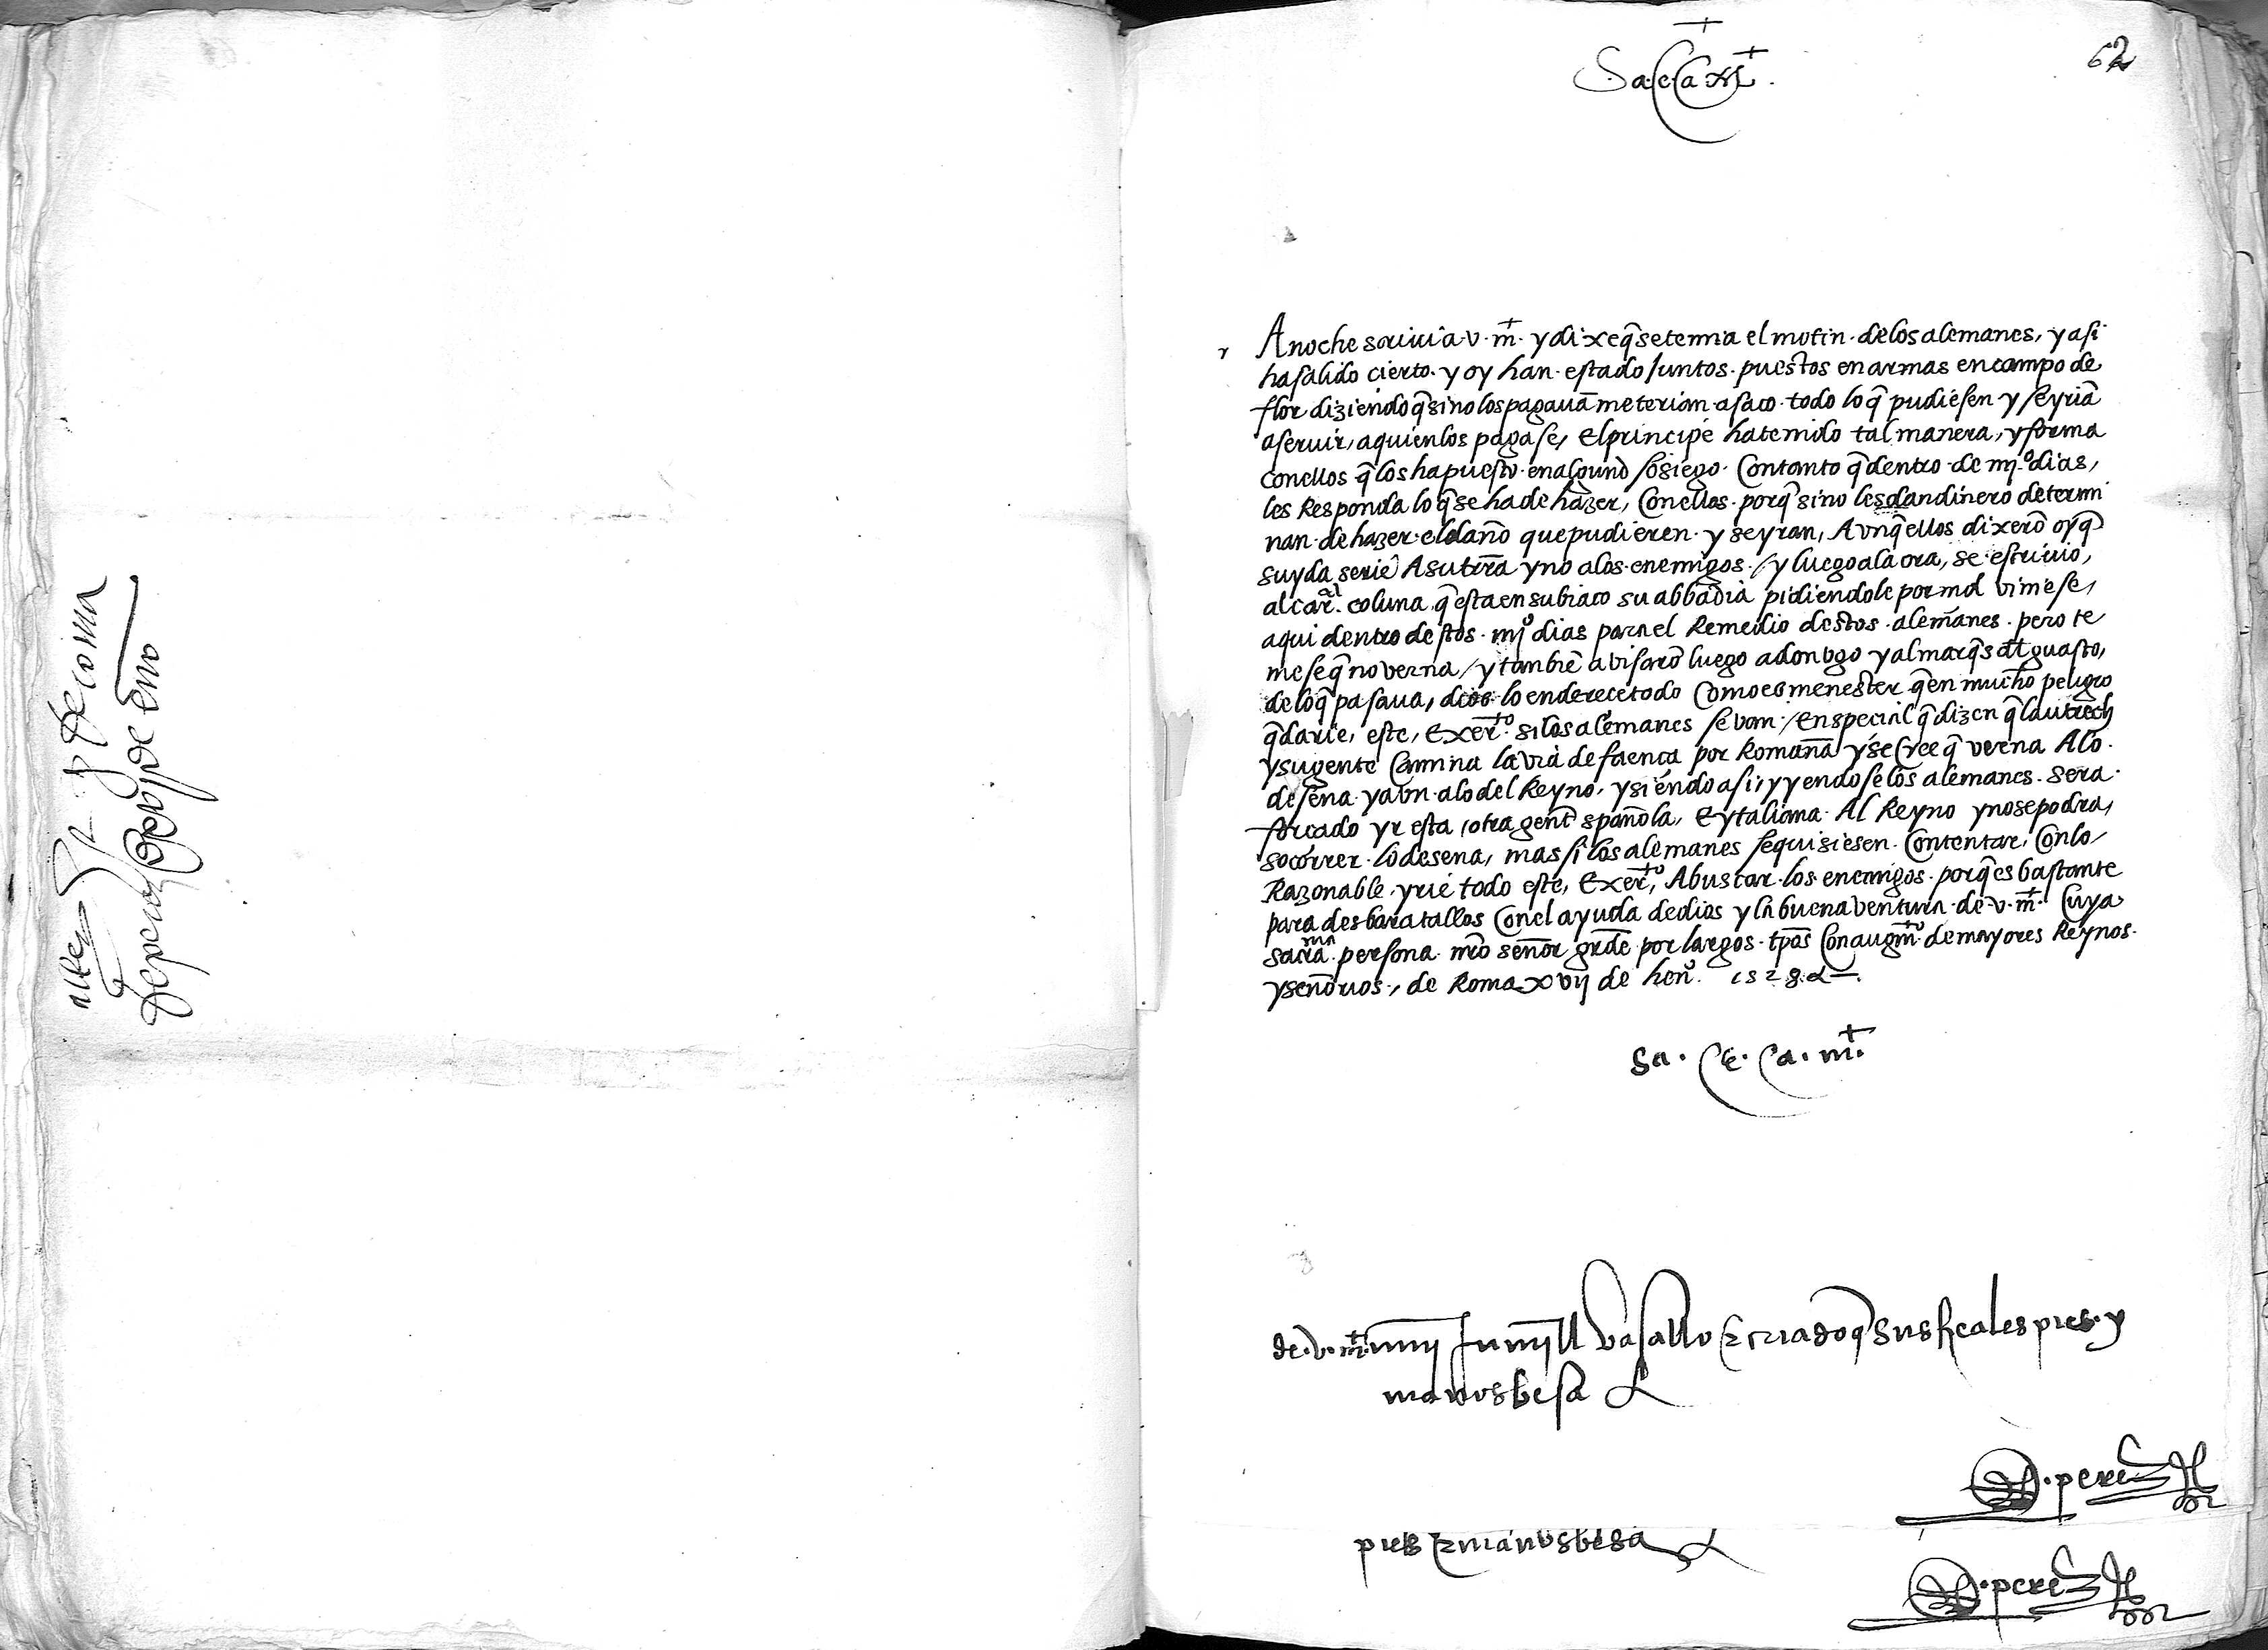 62
Sa. Ce. Ca. M.t
Anoche screui a v. m.t y dixe q̃ se temia el motin de los alemanes, y asi
ha salido cierto. y oy han estado juntos puestos en armas en campo de
flor diziendo q̃ si no los pagauã meterian a saco todo lo q̃ pudiesen y se yriã
a seruir, a quien los pagase, el principe ha tenido tal manera, y forma
con ellos q̃ los ha puesto en algund sosiego. Con tanto q̃ dentro de iiijº dias,
les Responda lo q̃ se ha de hazer, con ellos. porq̃ si no les dan dinero determi
nan de hazer el daño que pudieren y se yran, Avnq̃ ellos dixerõ oy q̃
su yda seriê A su trr̃a y no a los enemigos. / y luego a la ora, se escriuio,
al car.al coluna q̃ esta en subiaco su abbadia pidiendole por md viniese,
aqui dentro destos iiijº dias para el Remedio destos alemanes. pero te
mese q̃ no verna / y tambiẽ avisarõ luego a don vgo y al marq̃s del guasto,
de lo q̃ pasaua, dios lo enderece todo Como es menester q̃ en mucho peligro
q̃darie, este, Exer.to si los alemanes se van. / En special q̃ dizen q̃ lautrech
y su gente Camina la via de faença por Romaña y se Cree q̃ verna A lo
de sena y avn a lo del Reyno, y siendo asi, y yendose los alemanes sera
forçado yr esta otra gent española, E ytaliana Al Reyno y no se podra,
socorrer lo de sena, mas si los alemanes se quisiesen Contentar, Con lo
Razonable yrie todo este, Exer.to, A buscar los enemigos porq̃ es bastante
para desbaratallos Con el ayuda de dios y la buena ventura de v. m.t Cuya
sacra.ma persona nr̃o señor gr̃de por largos tp̃os Con augm.to de mayores Reynos
y señorios, de Roma xvij de henº. 1528 ã—.
Sa. Ce. Ca. m.t
de. v. m.t muy humijll vasallo E criado q̃ sus Reales pies y
manos besa
perez
pies E manos besa
perez